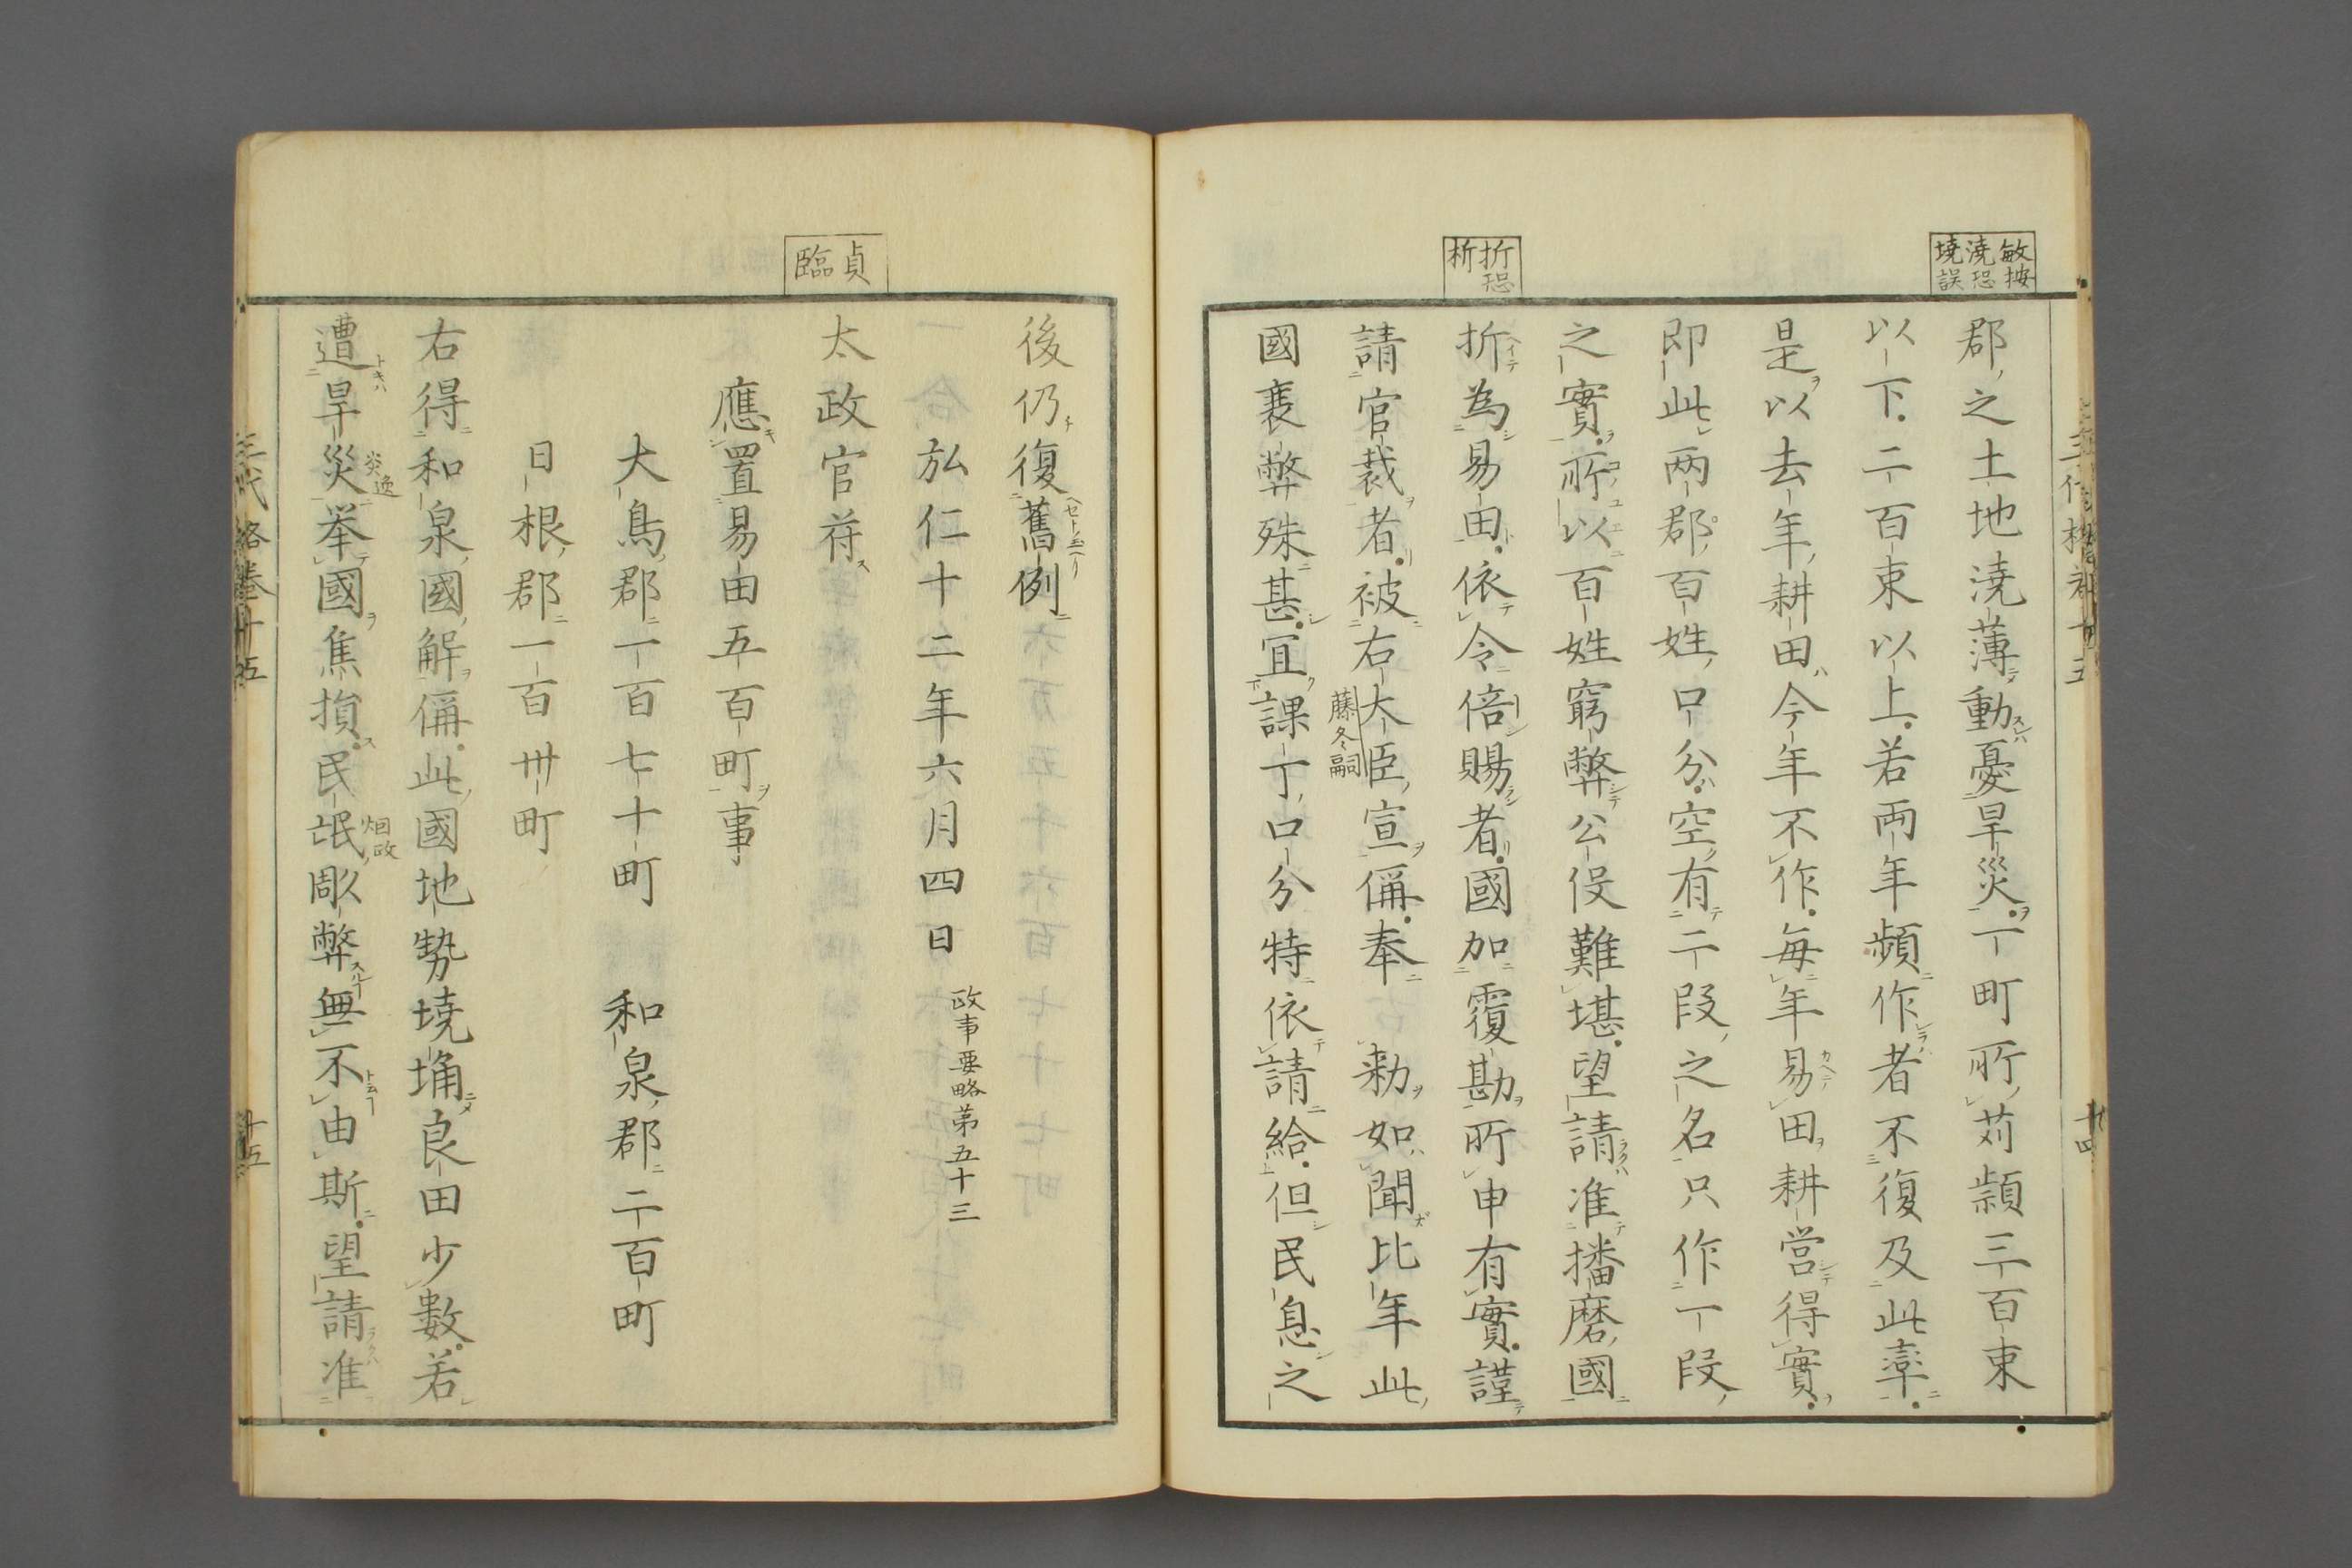 敏按
澆恐
墝誤
折恐
析
郡之土地澆薄動憂旱災一町所苅頴三百束
以下二百束以上若両年頻作者不復及此率
是以去年耕田今年不作毎年易田耕営得實
即此両郡百姓口分空有二段之名只作一段
之實所以百姓窮弊公役難堪望請准播磨國
折為易田依令倍賜者國加覆勘所申有實謹
請官裁者被右大臣宣偁奉　勅如聞比年此
藤冬嗣
國衰弊殊甚宜課丁口分特依請給但民息之
貞
臨
後仍復舊例
弘仁十二年六月四日　政事要略第五十三
太政官符
應置易田五百町事
大鳥郡一百七十町　和泉郡二百町
日根郡一百卅町
右得和泉國解偁此國地勢墝埆良田少數若
遭旱災挙國焦損民氓彫弊無不由斯望請准
炎逸
烟政
三代格巻十五
十五